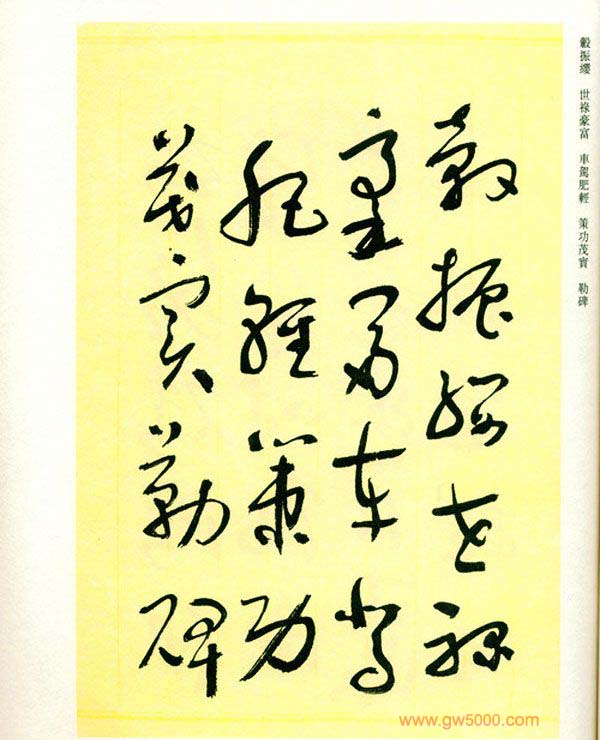 轂振纓 世祿豪富 車駕肥輕 策功茂實 勒碑
轂振纓世祿
豪富車駕
肥輕策功
茂實勒碑
www.gw5000.com